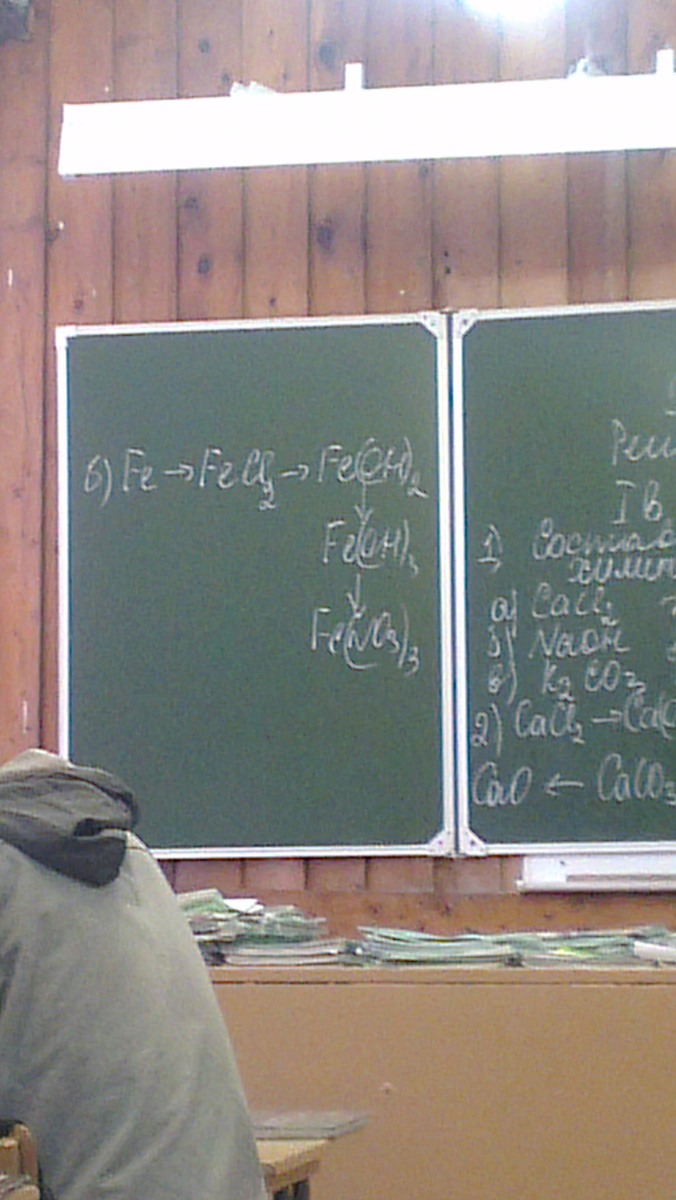 б) Fe → FeCl₂ → Fe(OH)₂
↓
Fe(OH)₃
↓
Fe(NO₃)₃
I в
1)
а) CaCl₂
б) NaOH
в) K₂CO₃
2) CaCl₂ → Ca(
CaO ← CaCO₃